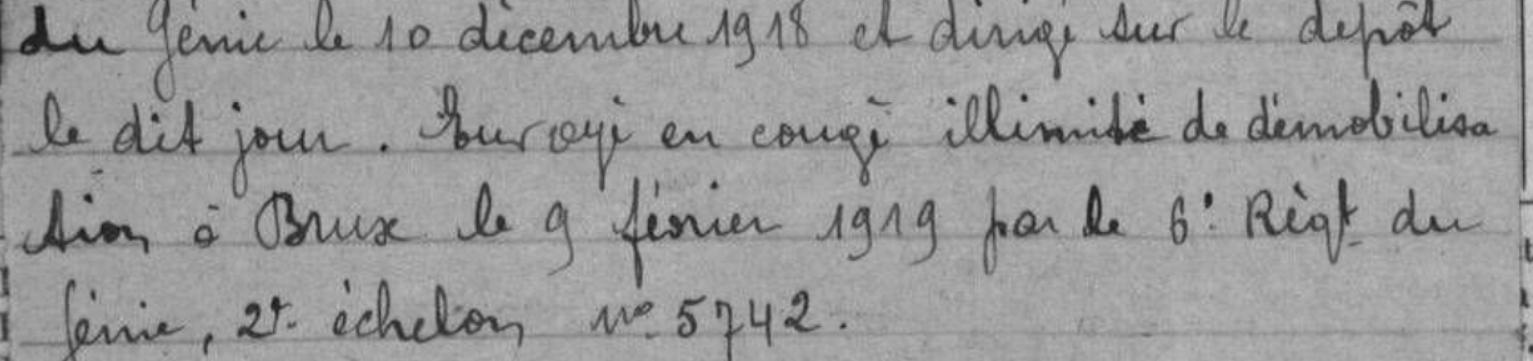 du Génie le 10 décembre 1918 et dirigé sur le depôt
le dit jour. Envoyé en congé illimité de démobilisa
tion à Brux le 9 février 1919 par le 6e Règt du
Génie, 2e échelon no 5742.